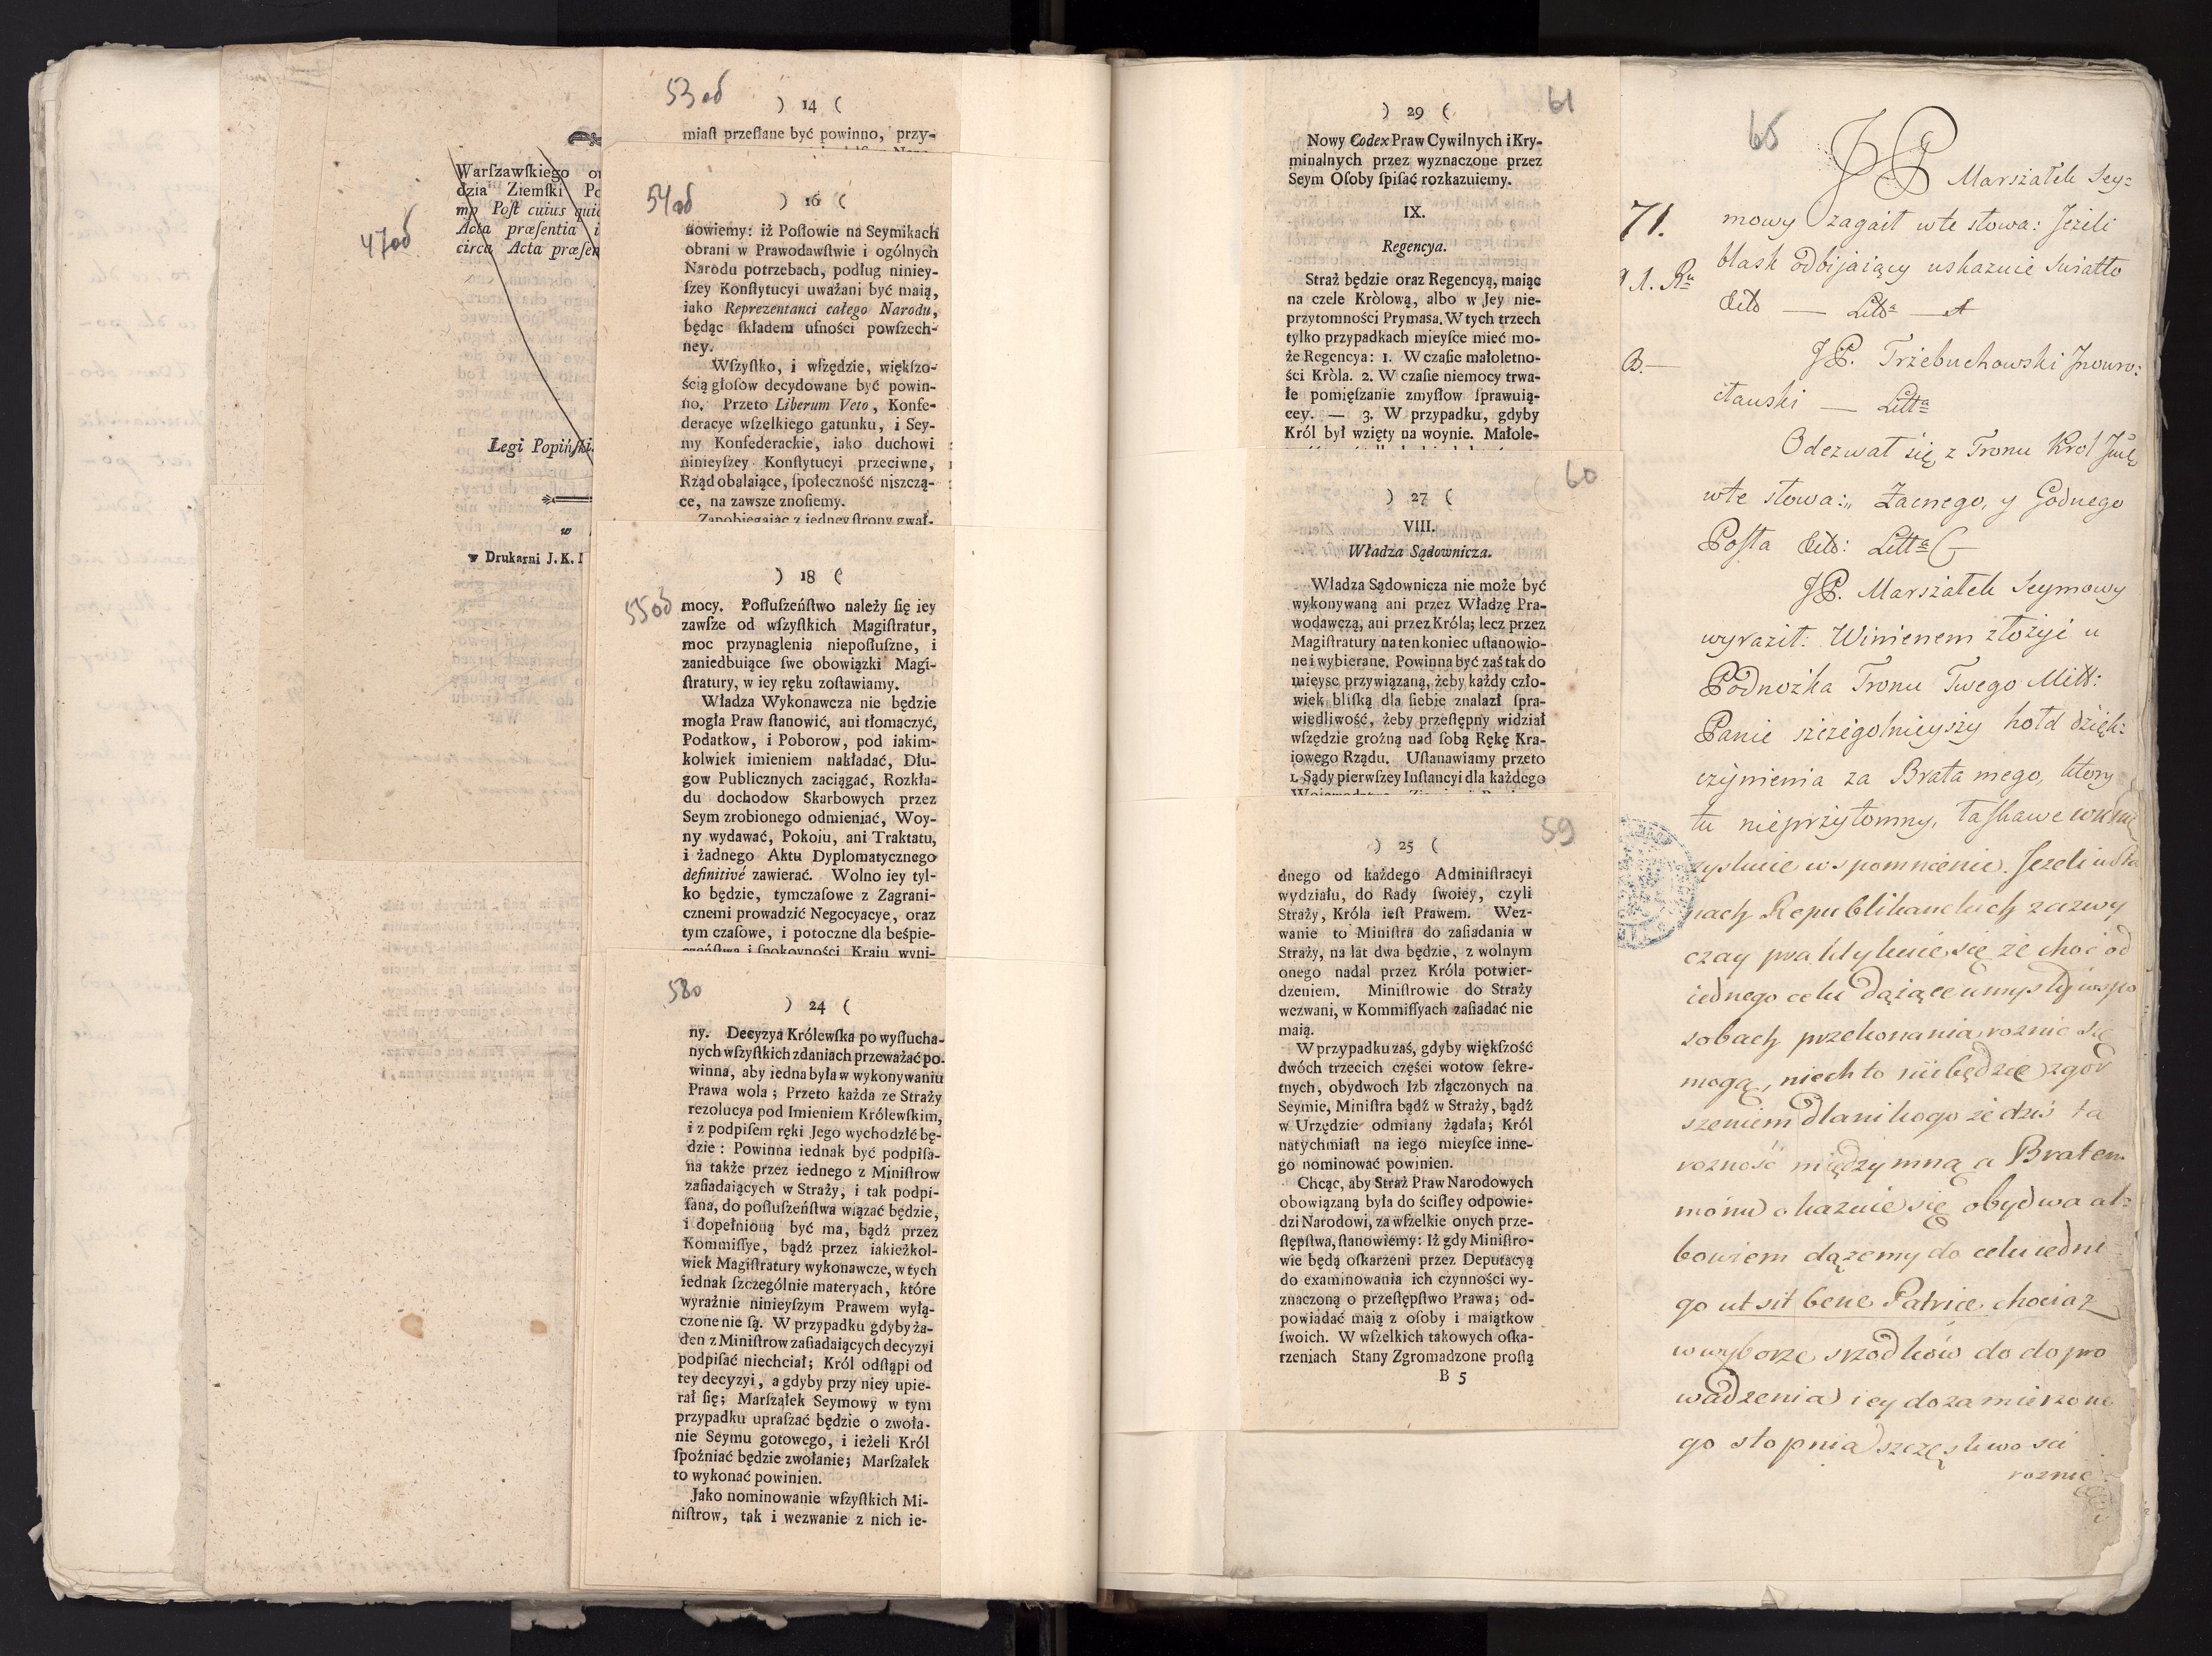 47об
Warſzawskiego
dzia Ziemſki
mp Poſt cuius
Acta præſentia i
circa Acta præſen
Legi Popińſki.
w
w Drukarni J. K. I
53об
) 14 (
miaſt przeſłane być powinno, przy-
54об
) 16 (
nowiemy: iż Poſłowie na Seymikach
obrani w Prawodawſtwie i ogólnych
Narodu potrzebach, podług niniey-
ſzey Konſtytucyi uważani być maią,
iako Reprezentanci całego Narodu,
będąc ſkładem ufności powſzech-
ney.
Wſzyſtko, i wſzędzie, więkſzo-
ścią głoſow decydowane być powin-
no. Przeto Liberum Veto, Konfe-
deracye wſzelkiego gatunku, i Sey-
my Konfederackie, iako duchowi
ninieyſzey Konſtytucyi przeciwne,
Rząd obalaiące, ſpołeczność niszczą-
ce, na zawsze znoſiemy.
Zapobiegaiąc z iedney ſtrony gwał-
55об
) 18 (
mocy. Poſłuſzeńſtwo należy ſię iey
zawſze od wſzyſtkich Magiſtratur,
moc przynaglenia niepoſłuſzne, i
zaniedbuiące ſwe obowiązki Magi-
ſtratury, w iey ręku zoſtawiamy.
Władza Wykonawcza nie będzie
mogła Praw ſtanowić, ani tłomaczyć,
Podatkow, i Poborow, pod iakim-
kolwiek imieniem nakładać, Dłu-
gow Publicznych zaciągać, Rozkła-
du dochodow Skarbowych przez
Seym zrobionego odmieniać, Woy-
ny wydawać, Pokoiu, ani Traktatu,
i żadnego Aktu Dyplomatycznego
definitivé zawierać. Wolno iey tyl-
ko będzie, tymczaſowe z Zagrani-
cznemi prowadzić Negocyacye, oraz
tym czaſowe, i potoczne dla beśpie-
czeńſtwa i ſpokoyności Kraiu wyni-
58о
) 24 (
ny. Decyzya Królewſka po wyſłucha-
nych wſzyſtkich zdaniach przeważać po-
winna, aby iedna była w wykonywaniu
Prawa wola; Przeto każda ze Straży
rezolucya pod Imieniem Królewſkim,
i z podpiſem ręki Jego wychodzić bę-
dzie: Powinna iednak być podpiſa-
na także przez iednego z Miniſtrow
zaſiadaiących w Straży, i tak podpi-
ſana, do poſłuſzeńſtwa wiązać będzie,
i dopełnioną być ma, bądź przez
Kommiſſye, bądź przez iakieżkol-
wiek Magiſtratury wykonawcze, w tych
iednak ſzczególnie materyach, które
wyraźnie ninieyſzym Prawem wyłą-
czone nie ſą. W przypadku gdyby ża-
den z Miniſtrow zaſiadaiących decyzyi
podpiſać niechciał; Król odſtąpi od
tey decyzyi, a gdyby przy niey upie-
rał ſię; Marſzałek Seymowy w tym
przypadku upraſzać będzie o zwoła-
nie Seymu gotowego, i ieżeli Król
ſpoźniać będzie zwołanie; Marſzałek
to wykonać powinien.
Jako nominowanie wſzyſtkich Mi-
niſtrow, tak i wezwanie z nich ie-
61
) 29 (
Nowy Codex Praw Cywilnych i Kry-
minalnych przez wyznaczone przez
Seym Oſoby ſpiſać rozkazuiemy.
IX.
Regencya.
Straż będzie oraz Regencyą, maiąc
na czele Królową, albo w Jey nie-
przytomności Prymasa. W tych trzech
tylko przypadkach mieyſce mieć mo-
że Regencya: 1. W czaſie małoletno-
ści Króla. 2. W czaſie niemocy trwa-
łe pomięſzanie zmyſłow ſprawuią-
cey. — 3. W przypadku, gdyby
Król był wzięty na woynie. Małole-
60
) 27 (
VIII.
Władza Sądownicza.
Władza Sądownicza nie może być
wykonywaną ani przez Władzę Pra-
wodawczą, ani przez Króla; lecz przez
Magiſtratury na ten koniec uſtanowio-
ne i wybierane. Powinna być zaś tak do
mieysc przywiązaną, żeby każdy czło-
wiek bliſką dla ſiebie znalazł ſpra-
wiedliwość, żeby przeſtępny widział
wſzędzie groźną nad ſobą Rękę Kra-
iowego Rządu. Uſtanawiamy przeto
1. Sądy pierwſzey Inſtancyi dla każdego
59
) 25 (
dnego od każdego Adminiſtracyi
wydziału, do Rady ſwoiey, czyli
Straży, Króla ieſt Prawem. Wez-
wanie to Miniſtra do zaſiadania w
Straży, na lat dwa będzie, z wolnym
onego nadal przez Króla potwier-
dzeniem. Miniſtrowie do Straży
wezwani, w Kommiſſyach zaſiadać nie
maią.
W przypadku zaś, gdyby więkſzość
dwóch trzecich części wotow ſekre-
tnych, obydwoch Izb złączonych na
Seymie, Miniſtra bądź w Straży, bądź
w Urzędzie odmiany żądała; Król
natychmiaſt na iego mieyſce inne-
go nominować powinien.
Chcąc, aby Straż Praw Narodowych
obowiązaną była do ściſłey odpowie-
dzi Narodowi, za wſzelkie onych prze-
ſtępſtwa, ſtanowiemy: Iż gdy Miniſtro-
wie będą oſkarzeni przez Deputacyą
do examinowania ich czynności wy-
znaczoną o przeſtępſtwo Prawa; od-
powiadać maią z oſoby i maiątkow
ſwoich. W wſzelkich takowych oſka-
rzeniach Stany Zgromadzone proſtą
B 5
65
JP Marszałek Sey=
71. mowy zagaił w te słowa: Jeżeli
blask odbijaiący uskazuie swiatło
JP. Trzebuchowski Jnowro:
cławski — Litta
Odezwał się z Tronu Krol Jmć
w te słowa: „ Zacnego, y Godnego
Posła
JP. Marszałek Seymowy
wyraził: Winienem złożyć u
Podnożka Tronu Twego Miłł:
Panie szczegolnieyszy hołd dzięk:
czynienia za Brata mego, ktory
tu nieprzytomny, łaskawe
wspomnienie. Jeżeli
Republikanckich zazwy
czay praktykuie się że choć od
iednego celu dążące umysły w spo
sobach przekonania roznic się
mogą, niech to nie będzie zgor
szeniem dla nikogo że dziś ta
rozność między mną a Bratem
moim okazuie się obydwa al=
bowiem dążemy do celu iedne
go ut sit bene Patriae chociaż
w wyborze srzodków do dopro
wadzenia iey do zamierzone
go stopnia szczęsliwosci
roznie